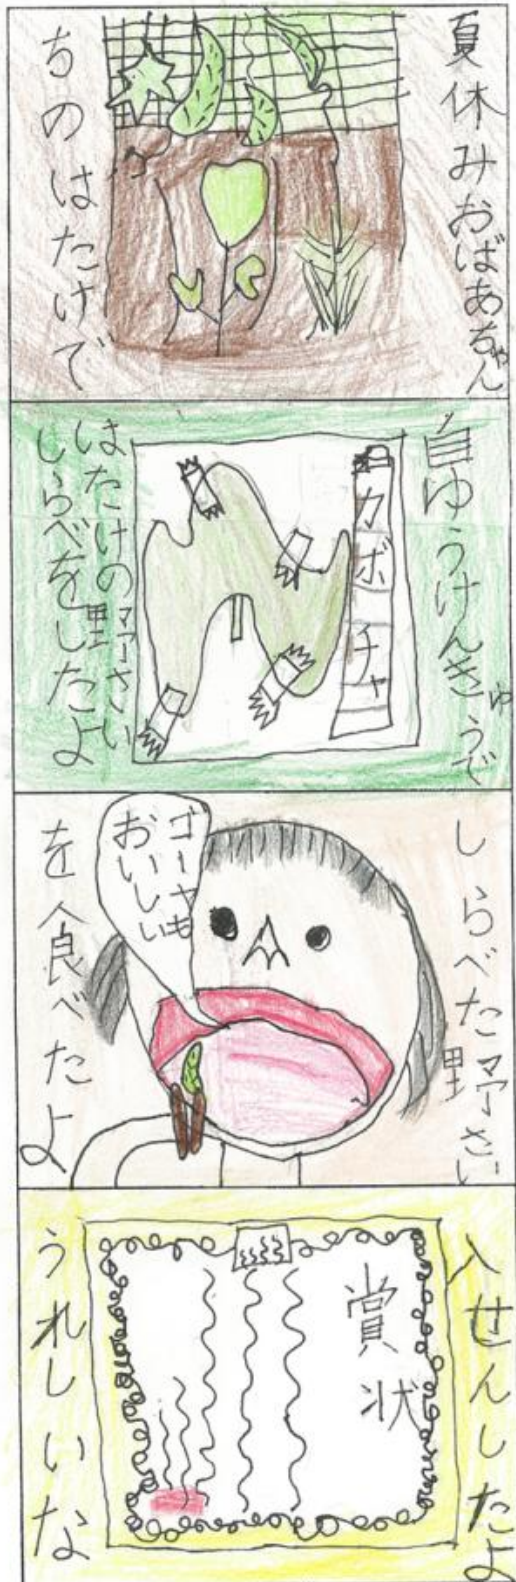 夏休みおばあちゃん
ちのはたけで
自ゆうけんきゅうで
カボチャ
はたけの野さい
しらべをしたよ
しらべた野さい
ゴーヤも
おいしい
を食べたよ
入せんしたよ
賞状
うれしいな